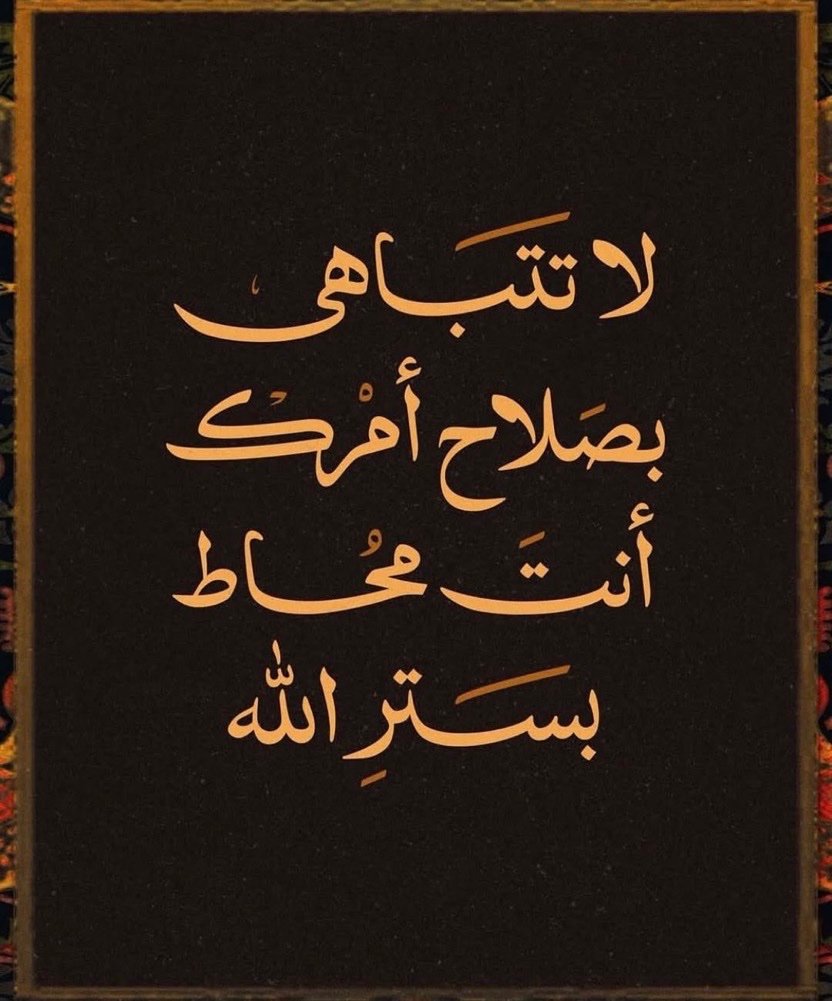 لا تتَباهى
بصَلاح أمْرك
أنتَ مُحاط
بسَترِ الله